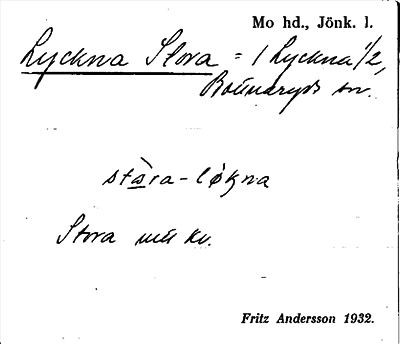 Mo hd., Jönk. l.
Lyckna Stora = 1 Lyckna 1/2,
Bounaryds sn.
stàra-løkna
Stora
Fritz Andersson 1932.